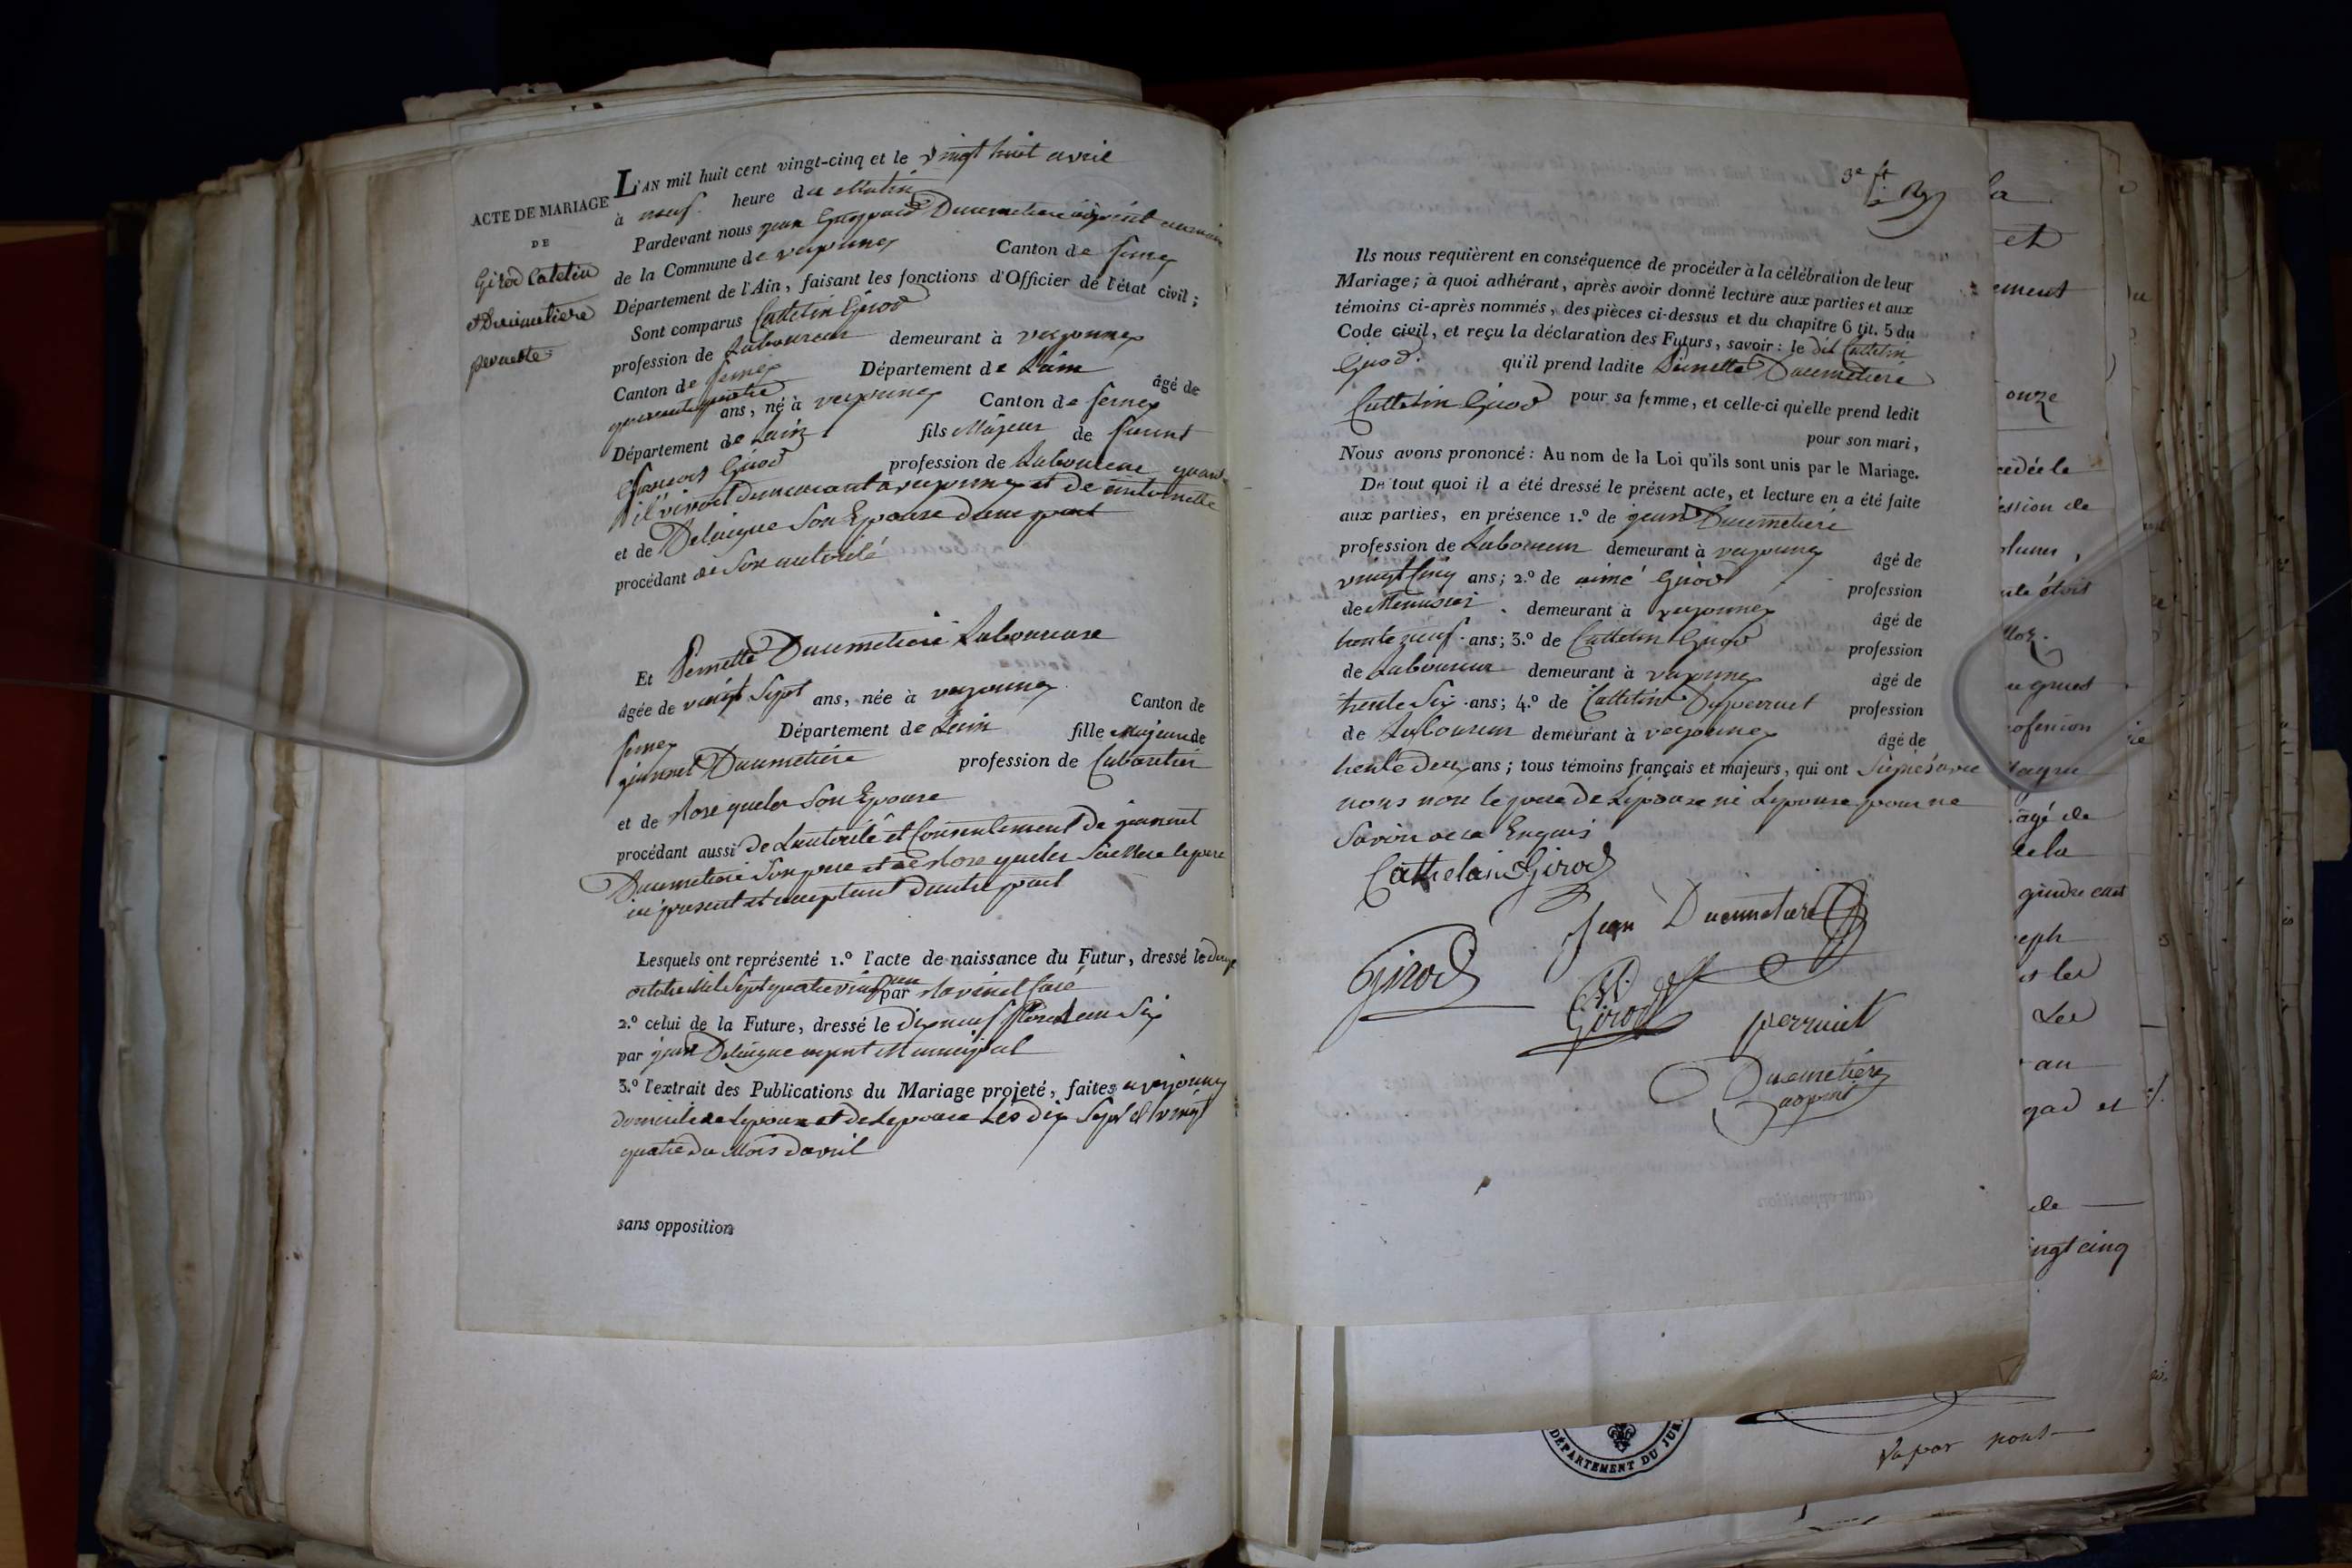 ACTE DE MARIAGE
DE
Girod Catelin
et Ducimetiere
pernette
L'AN mil huit cent vingt-cinq et le vingt huit avril
à neuf heure du Matin
Pardevant nous jean Gaspard Ducimetiere adjoint au maire
de la Commune de vesonnex Canton de fernex
Département de l'Ain, faisant les fonctions d'Officier de l'état civil;
Sont comparus Cattelin Girod
profession de Laboureur demeurant à vesonnex
Canton de fernex Département de Lain âgé de
quarante quatre ans, né à vesonnex Canton de fernex
Département de Lain fils Majeur de feu
francois Girod profession de Laboureur quand
il vivoit demeurant a vesonnex et de antoinette
et de Delaigue Son Epouse dune part
procédant de Son autorité
Et Pernette Ducimetiere Laboureuse
âgée de vingt Sept ans, née à vesonnex Canton de
fernex Département de Lain fille Majeure de
jeannet Ducimetiere profession de Cabaretier
et de Rose quelos Son Epouse
procédant aussi de Lautorité et Consentement de jeannet
Ducimetiere Son pere et de Rose quelos Sa Mere le pere
ici present et acceptant dautre part
Lesquels ont représenté 1.º l'acte de naissance du Futur, dressé le douze
octobre Mil Sept quatre vingt un par Ravinel Curé
2.º celui de la Future, dressé le dix neuf floreal an Six
par jean Delaigue agent Municipal
3.º l'extrait des Publications du Mariage projeté, faites a vesonnex
domicile de Lepoux et de Lepouse Les dix Sept et vingt
quatre du Mois davril
sans opposition
3e ft
Ils nous requièrent en conséquence de procéder à la célébration de leur
Mariage; à quoi adhérant, après avoir donné lecture aux parties et aux
témoins ci-après nommés, des pièces ci-dessus et du chapitre 6 tit. 5 du
Code civil, et reçu la déclaration des Futurs, savoir: le dit Cattelin
Girod. qu'il prend ladite Pernette Ducimetiere
pour sa femme, et celle-ci qu'elle prend ledit
Cattelin Girod pour son mari,
Nous avons prononcé: Au nom de la Loi qu'ils sont unis par le Mariage.
De tout quoi il a été dressé le présent acte, et lecture en a été faite
aux parties, en présence 1.º de jean Ducimetiere
profession de Laboureur demeurant à vesonnex âgé de
vingt Cinq ans; 2.º de aimé Girod profession
de Menuisier demeurant à vesonnex âgé de
trente neuf ans; 3.º de Cattelin Girod profession
de Laboureur demeurant à vesonnex âgé de
trente Six ans; 4.º de Cattelin Duperruet profession
de Laboureur demeurant à vesonnex âgé de
trente Deux ans; tous témoins français et majeurs, qui ont Signé avec
nous non le pere de Lepouse ni Lepouse pour ne
Savoir de ce Enquis
Cathelain Girod
Jean Ducimetiere
Girod
Girod
perruet
Ducimetiere
adjoint
la
et
ement
onze
cédée le
ession de
ofession
agé de
de la
eph
et les
Les
au
gad et
ingt cinq
DÉPARTEMENT DU JURA
Vu par nous